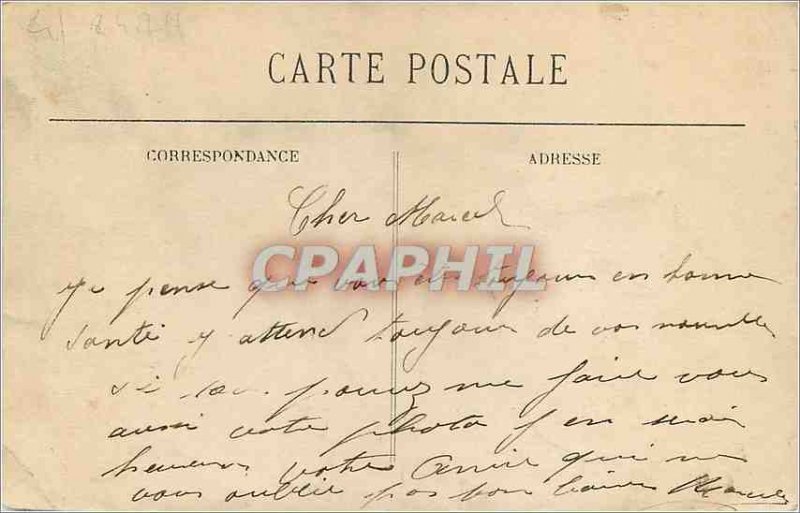 CARTE POSTALE
CORRESPONDANCE
ADRESSE
Cher Marcel
CPAPHIL
je pense que vous etes toujours en bonne
santé j attend toujour de vos nouvelles
si vous pouvez me faire vous
aussi votre photo j en serai
heureuse votre Amie qui ne
vous oublie pas bon